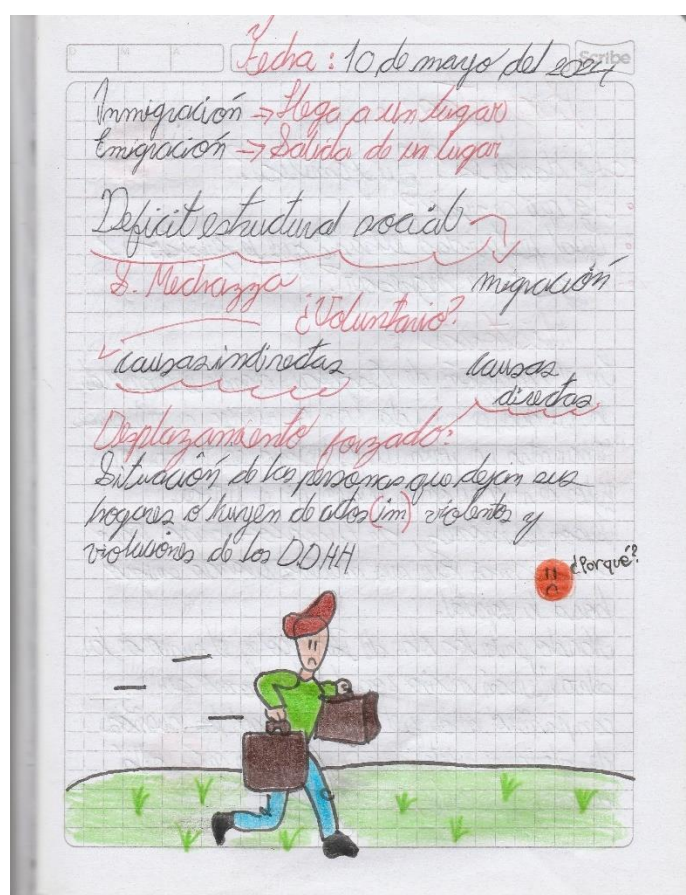 D M A
Fecha: 10 de mayo del 2024
Scribe
Inmigración → llega a un lugar
Emigración → Salida de un lugar
Deficit estructural social →
S. Mechazza
migración
¿Voluntario?
causas indirectas
causas
directas
Desplazamiento forzado:
Situación de las personas que dejan sus
hogares o huyen de actos (im) violentos y
violaciones de los DDHH
¿Porqué?